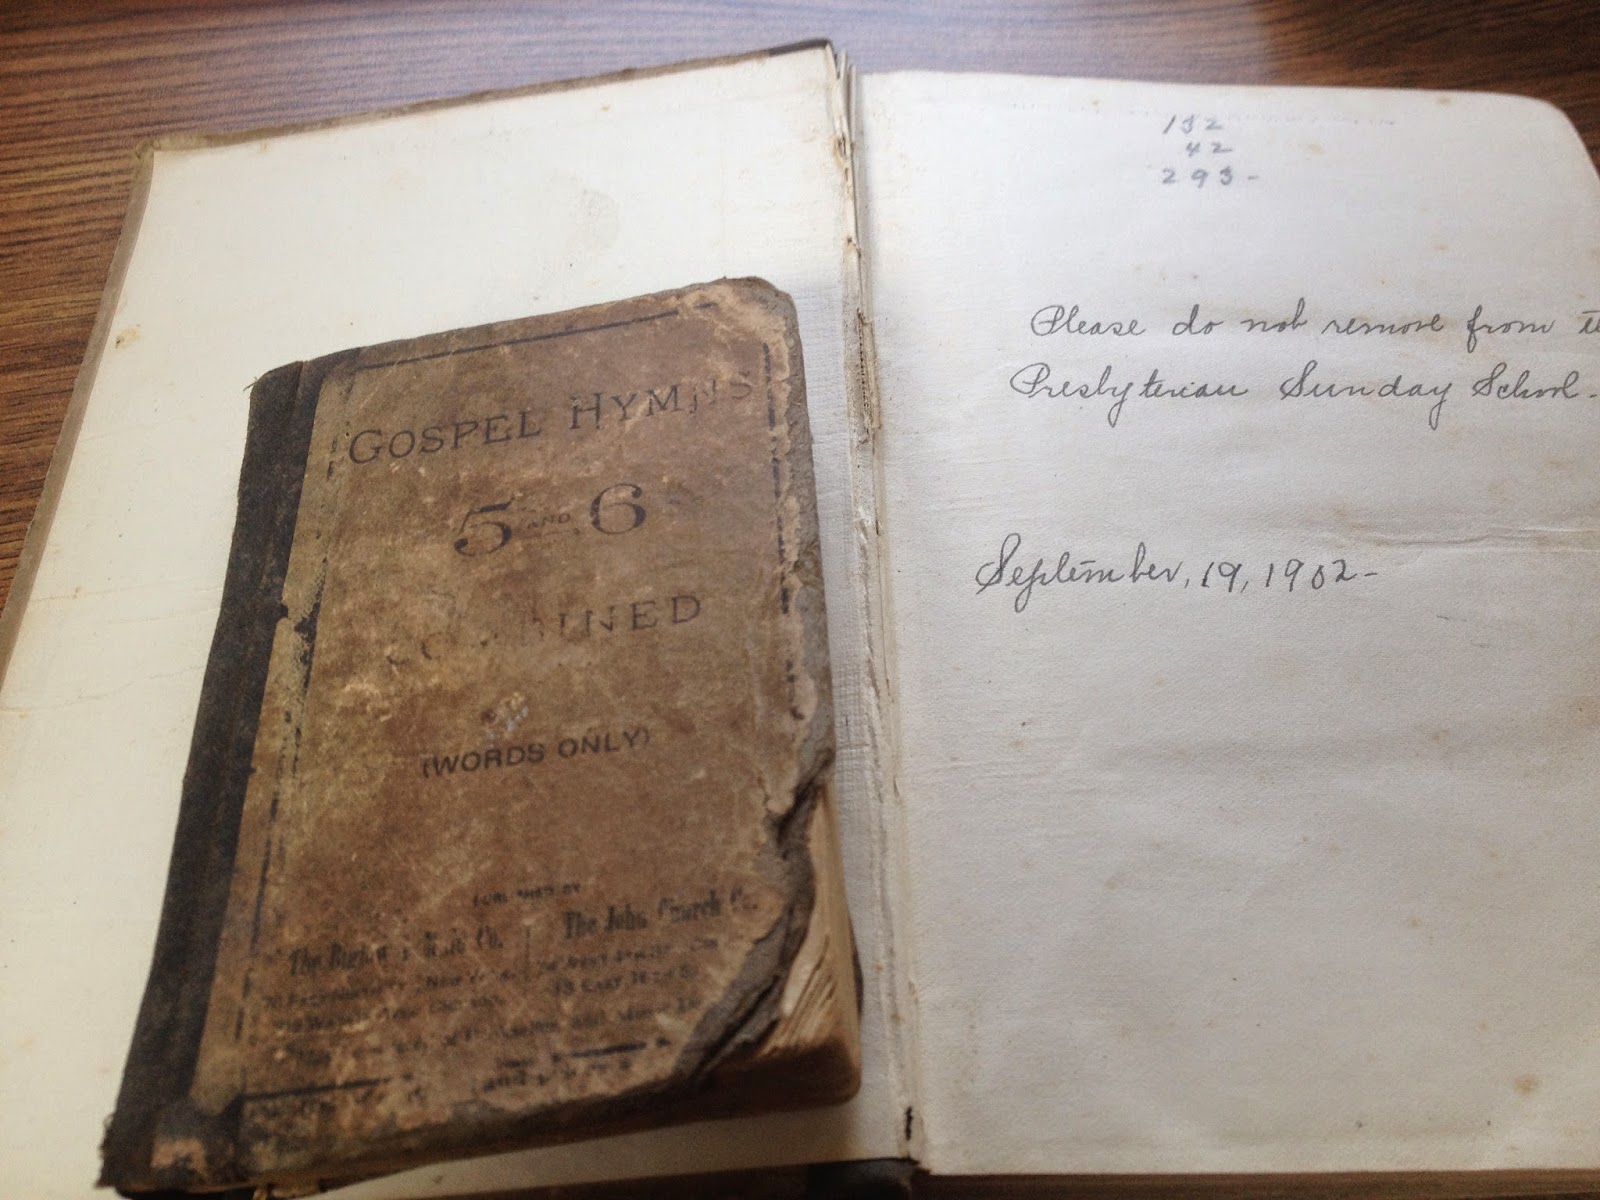 GOSPEL HYMNS
5 AND 6
COMBINED
(WORDS ONLY)
PUBLISHED BY
The John Church Co.
The Biglow & Main Co.
132
42
293-
Please do not remove from
Presbyterian Sunday School.
September, 19, 1902-